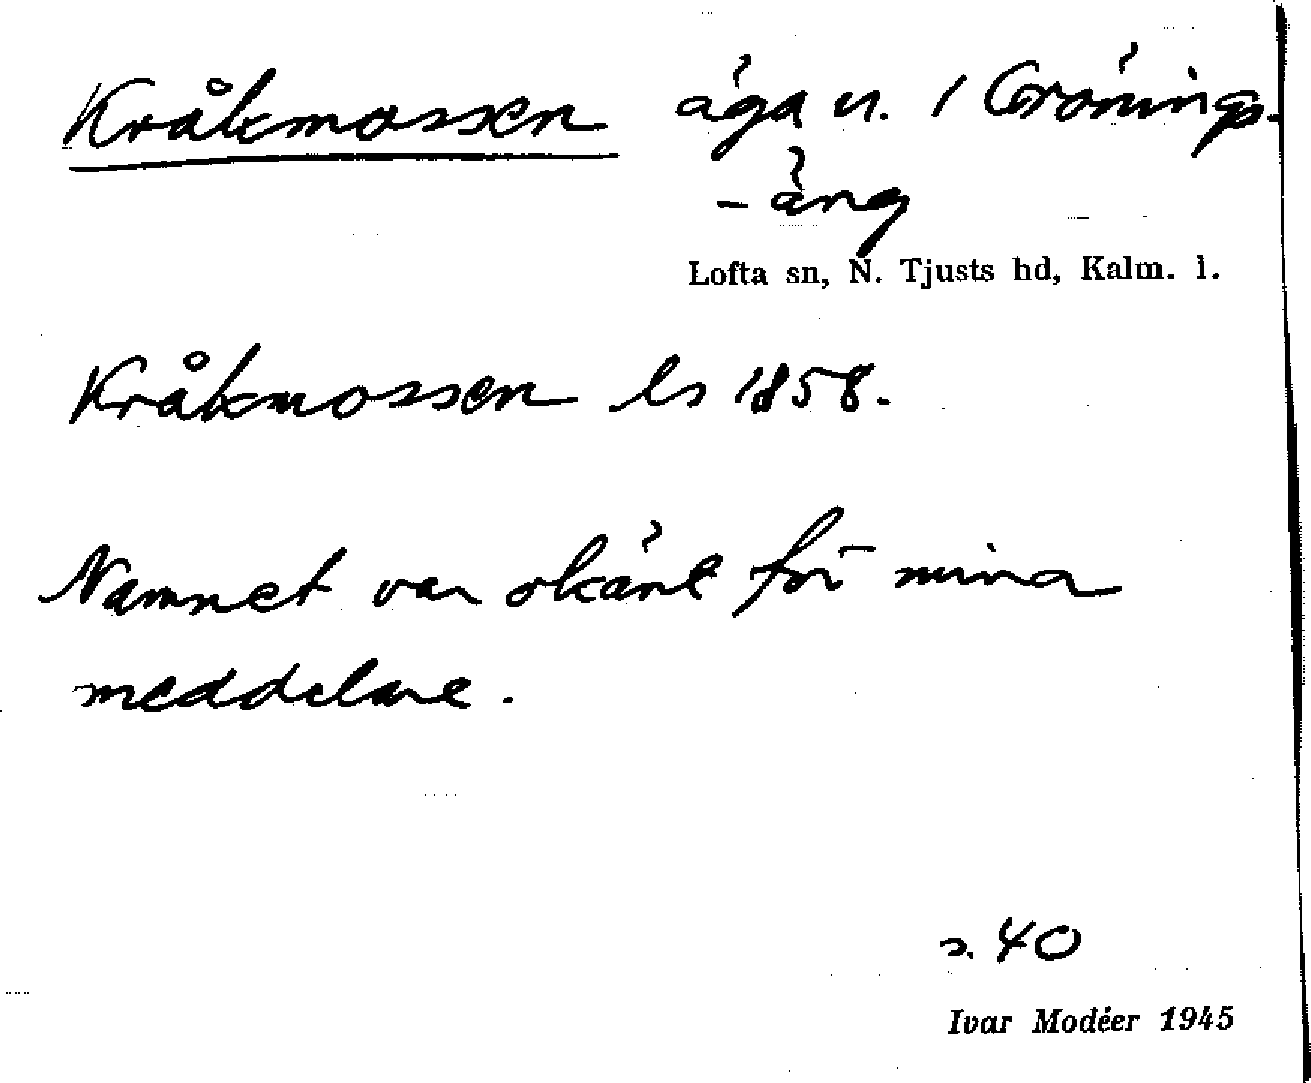 Kråkmossen äga u. / Grönings-
- äng
Lofta sn, N. Tjusts hd, Kalm. l.
Kråkmossen ls 1858.
Namnet var okänt för mina
meddelare.
s. 40
Ivar Modéer 1945